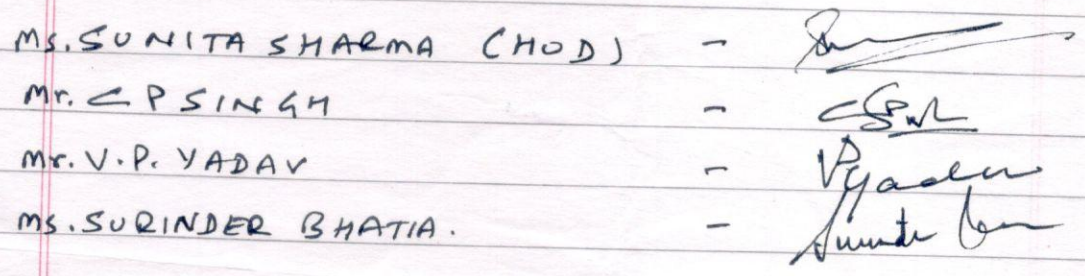 Ms. SUNITA SHARMA (HOD) -
Mr. C P SINGH -
Mr. V.P. YADAV - VPYadav
Ms. SURINDER BHATIA. -